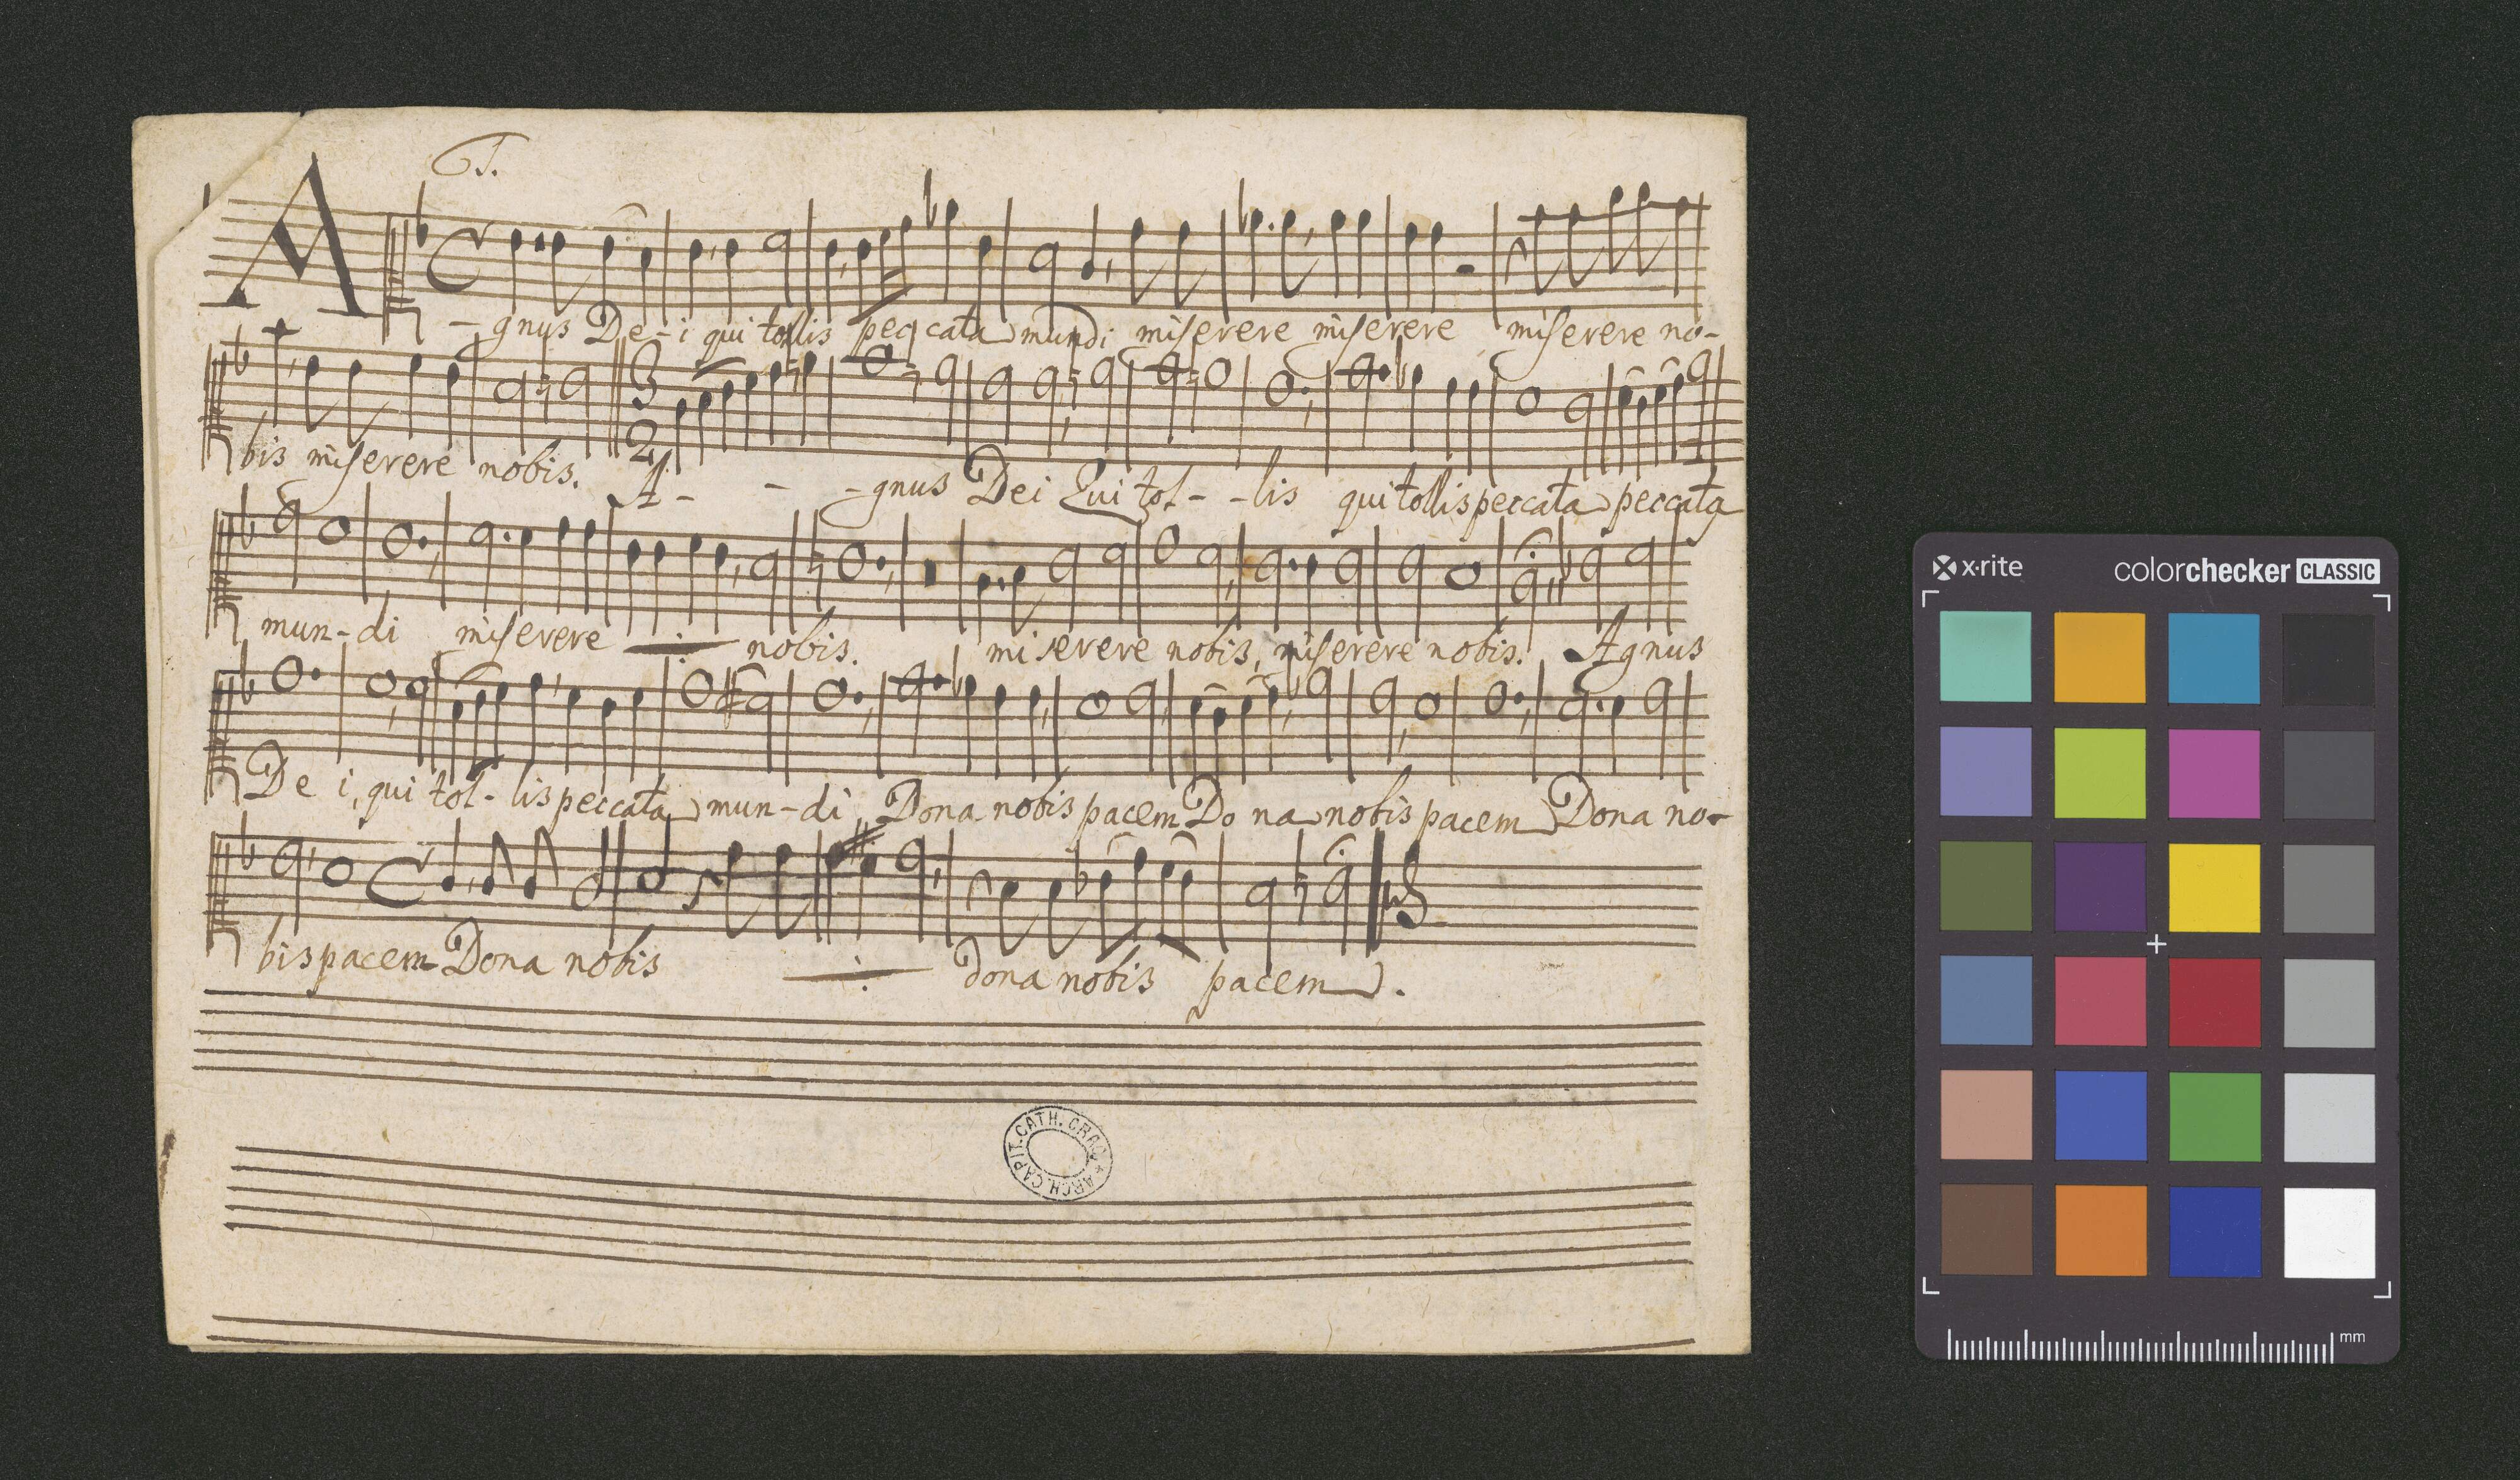 A
- gnus De - i qui tollis peccata mundi miserere miserere miserere no-
bis miserere nobis. A - - - gnus Dei Qui tol - - lis qui tollis peccata peccata
mun - di miserere nobis. miserere nobis, miserere nobis. Agnus
De i, qui tol - lis peccata mun - di, Dona nobis pacem Do na nobis pacem Dona no-
bis pacem Dona nobis dona nobis pacem.
ARCH. CAPIT. CATH. CRAC.
x·rite
colorchecker CLASSIC
mm